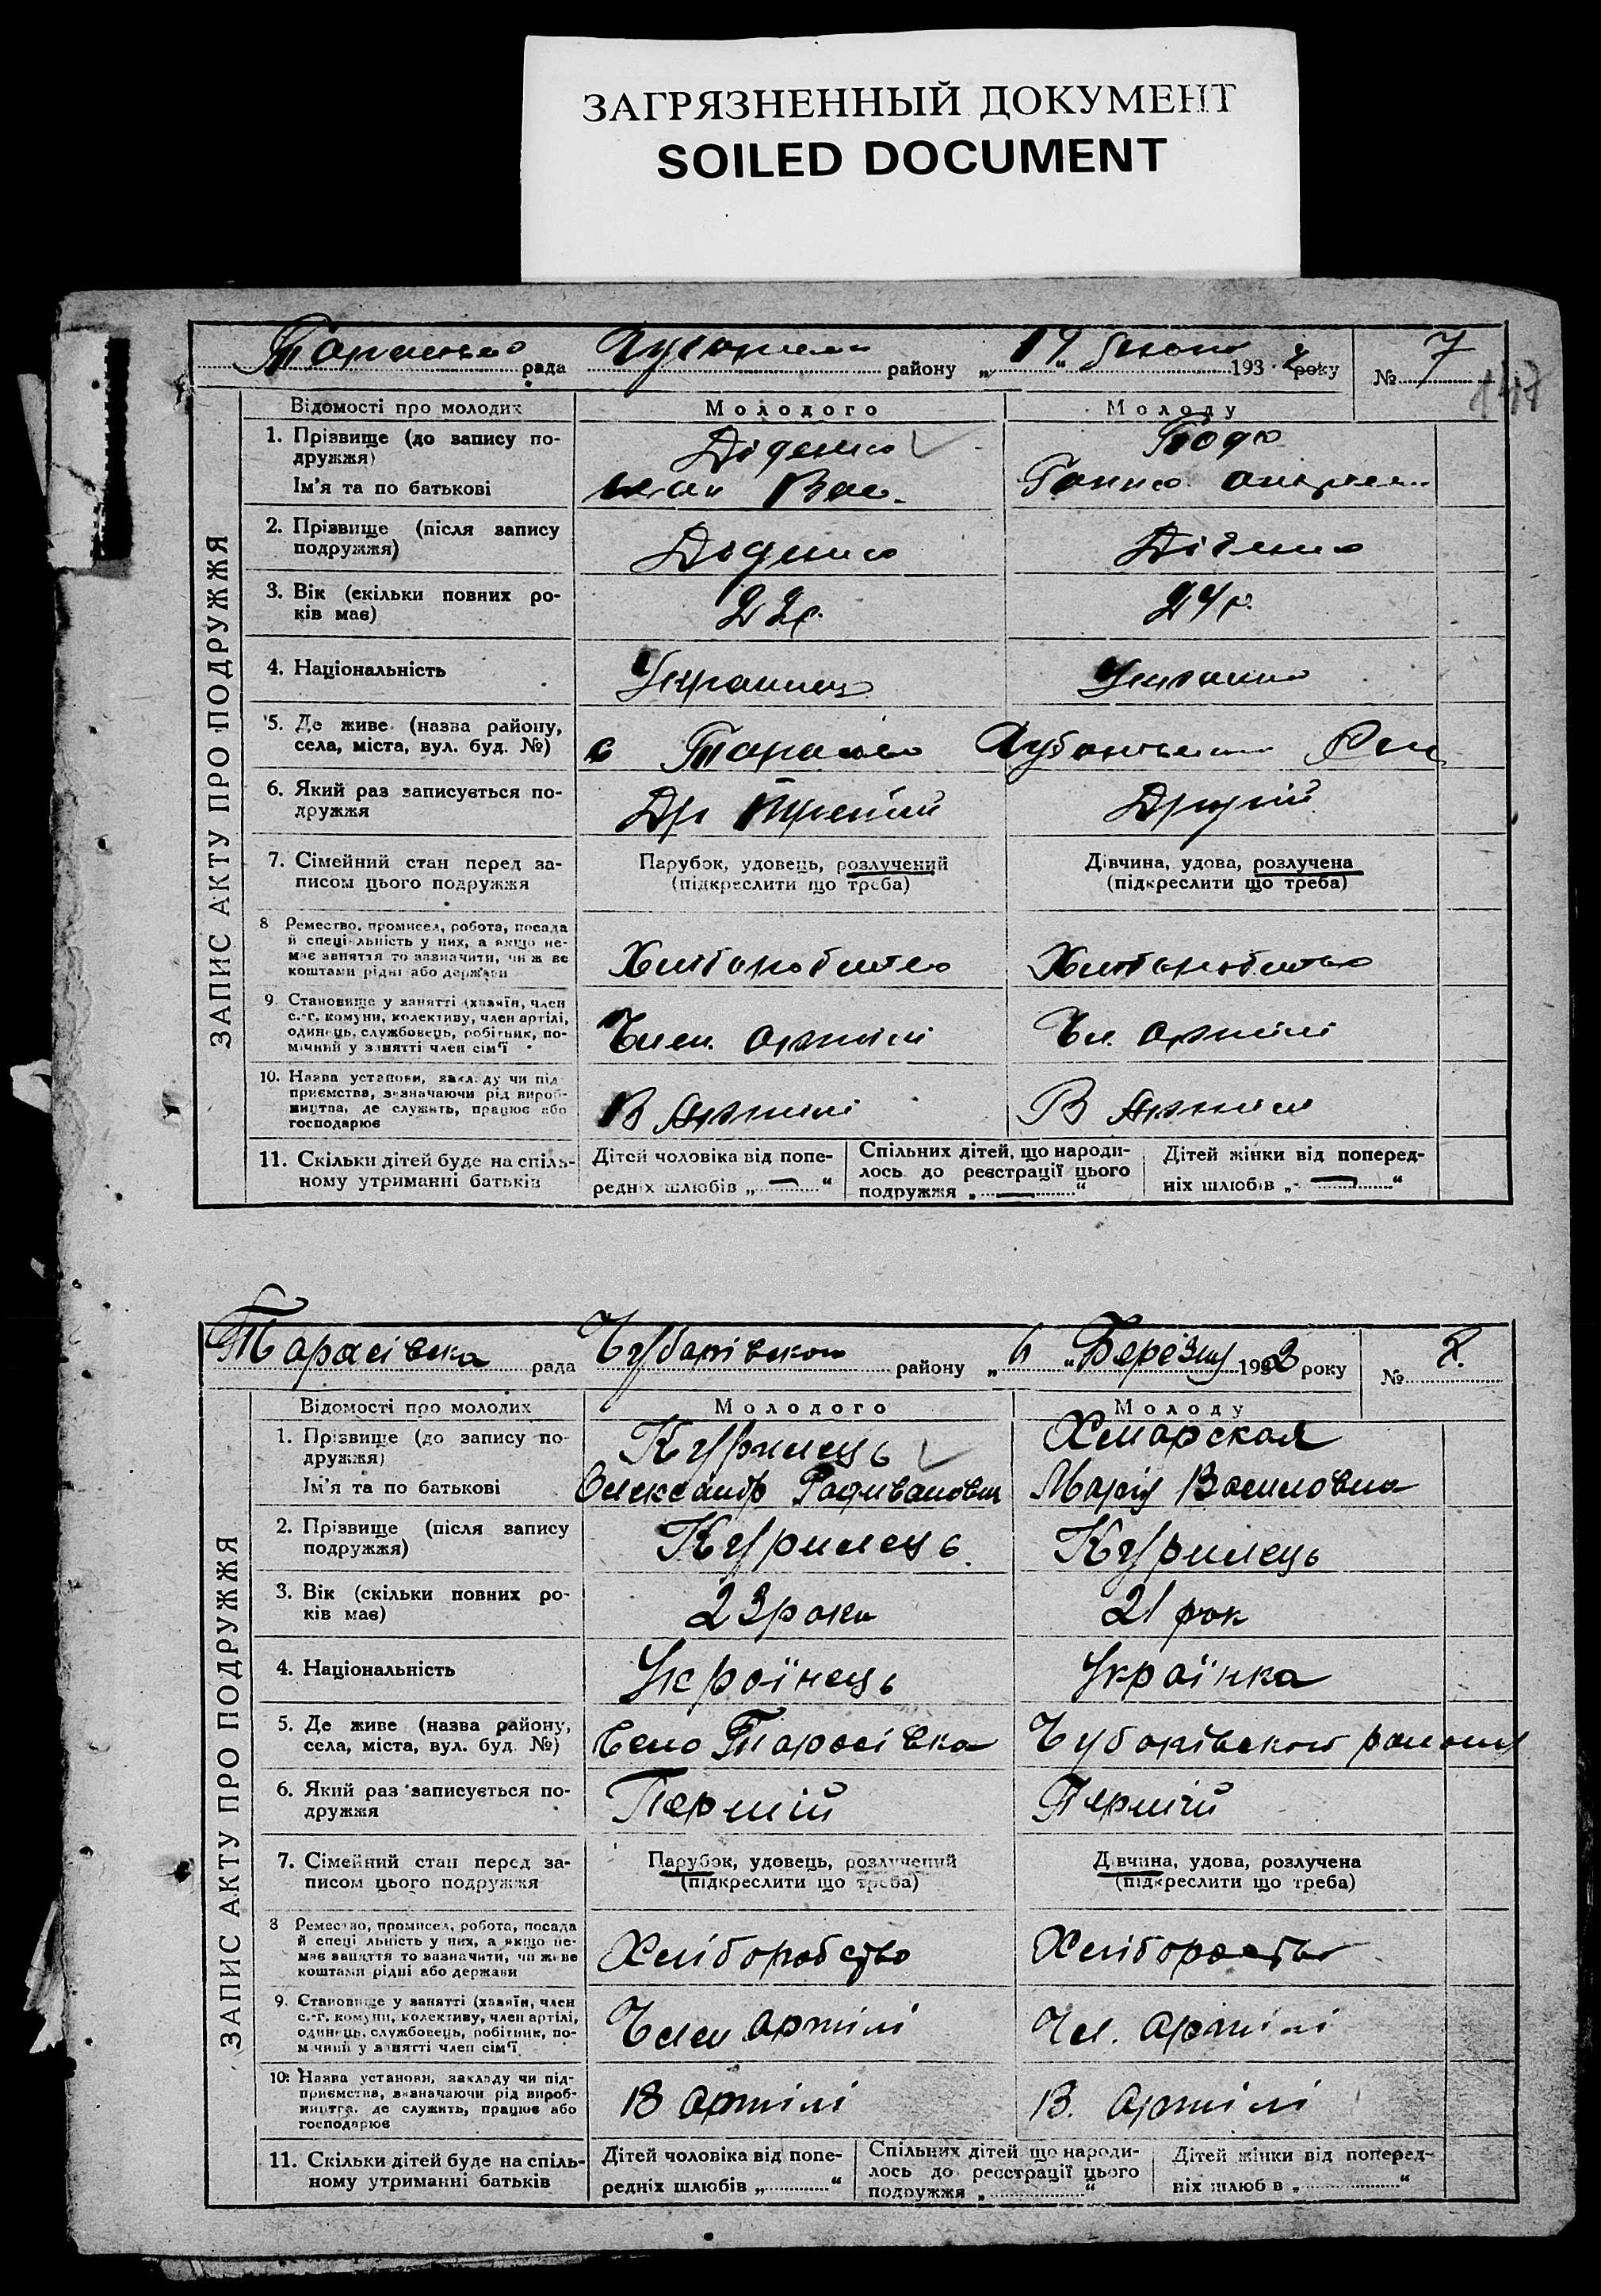 ЗАГРЯЗНЕННЫЙ ДОКУМЕНТ
SOILED DOCUMENT
рада району „ 19 “ 193 2 року № 7
147
ЗАПИС АКТУ ПРО ПОДРУЖЖЯ
Відомості про молодих
Молодого
Молоду
1. Прізвище (до запису по-
дружжя)
Ім'я та по батькові
Діденко
2. Прізвище (після запису
подружжя)
Діденко
Діденко
3. Вік (скільки повних ро-
ків має)
22р.
24р.
4. Національність
Украинец
5. Де живе (назва району,
села, міста, вул. буд. №)
с
6. Який раз записується по-
дружжя
Другий
7. Сімейний стан перед за-
писом цього подружжя
Парубок, удовець, розлучений
(підкреслити що треба)
Дівчина, удова, розлучена
(підкреслити що треба)
8 Ремество, промисел, робота, посада
й спеціяльність у них, а якщо не-
має заняття то зазначити, чи ж ве
коштами рідні або держави
9. Становище у занятті (хазяїн, член
с.-г. комуни, колективу, член артілі,
одинець, службовець, робітник, по-
мічний у занятті член сім'ї
Член артілі
Чл. артілі
10. Назва установи, закладу чи під-
приємства, зазначаючи рід вироб-
ництва, де служить, працює або
господарює
В Артілі
В Артілі
11. Скільки дітей буде на спіль-
ному утриманні батьків
Дітей чоловіка від попе-
редніх шлюбів „ — “
Спільних дітей, що народи-
лось до реєстрації цього
подружжя „ — “
Дітей жінки від поперед-
ніх шлюбів „ — “
Тарасівска рада Чубарівского району „ 6 “ Березня 193 року №
ЗАПИС АКТУ ПРО ПОДРУЖЖЯ
Відомості про молодих
Молодого
Молоду
1. Прізвище (до запису по-
дружжя)
Ім'я та по батькові
Курилець
Олександр
Хмарская
Марія Василовна
2. Прізвище (після запису
подружжя)
Курилець
Курилець
3. Вік (скільки повних ро-
ків має)
23 роки
21 рок
4. Національність
Українець
Українка
5. Де живе (назва району,
села, міста, вул. буд. №)
Село Тарасівка
Чубарівского району
6. Який раз записується по-
дружжя
Перший
Перший
7. Сімейний стан перед за-
писом цього подружжя
Парубок, удовець, розлучений
(підкреслити що треба)
Дівчина, удова, розлучена
(підкреслити що треба)
8 Ремество, промисел, робота, посада
й спеціяльність у них, а якщо не-
має заняття то зазначити, чи живе
коштами рідні або держави
Хліборобство
9. Становище у занятті (хазяїн, член
с.-г. комуни, колективу, член артілі,
одинець, службовець, робітник, по-
мічний у занятті член сім'ї
Член артілі
Чл. артілі
10. Назва установи, закладу чи під-
приємства, зазначаючи рід вироб-
ництва, де служить, працює або
господарює
В артілі
В. артілі
11. Скільки дітей буде на спіль-
ному утриманні батьків
Дітей чоловіка від попе-
редніх шлюбів „ “
Спільних дітей що народи-
лось до реєстрації цього
подружжя „ “
Дітей жінки від поперед-
ніх шлюбів „ “